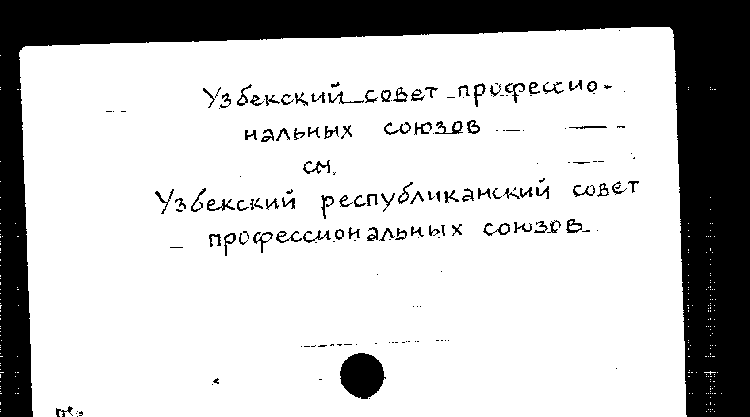 Узбекский совет профессио-
нальных союзов
см.
Узбекский республиканский совет
профессиональных союзов